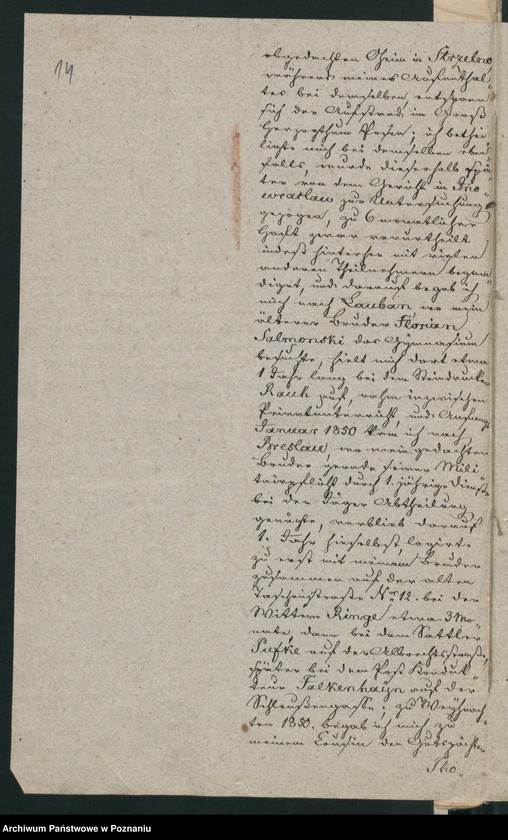 14
obgedachten Oheim in Strzelno
während meines Aufenthal-
tes bei demselben entspann
sich der Aufstand im Gross
Herzogthum Posen; ich bethei-
ligte mich bei demselben eben-
falls, wurde dieserhalb spä-
ter von dem Gericht in Ino-
wraclaw zur Untersuchung
gezogen, zu 6 monatlicher
Haft zwar verurtheilt
indeß hinterher mit vielen
anderen Theilnehmern begna-
diget, und darauf begab ich
mich nach Lauban, wo mein
älterer Bruder Florian
Salmonski das Gymnasium
besuchte, hielt mich dort etwa
1 Jahr lang bei dem Steindrucker
Rauh auf, nahm inzwischen
Privatunterricht, und Anfangs
Januar 1850 kam ich nach
Breslau, wo mein gedachter
Bruder gerade seiner Mili-
tairpflicht durch 1. jährige Dienste
bei der Jäger Abtheilung
genügte, verblieb darauf
1. Jahr hieselbst, logirte
zu erst mit meinem Bruder
zusammen auf der alten
Taschenstraße Nr 12. bei der
Wittwe Ringe etwa 3 Mo-
nate, dann bei dem Sattler
Pufke auf der Albrechtsstraße,
später bei dem Post Konduk-
teur Falkenhayn auf der
Schleußengasse; zu Weyhnach-
ten 1850. begab ich mich zu
meinem Cousin dem Gutspächter
Tho-
Archiwum Państwowe w Poznaniu